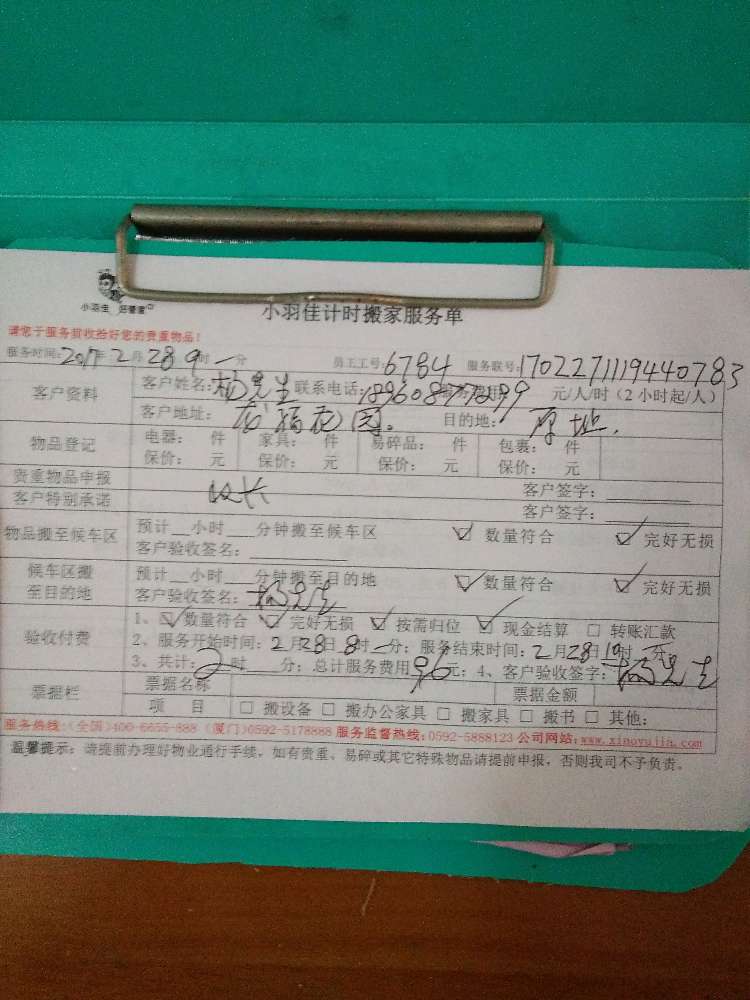 小羽佳 好管家
小羽佳计时搬家服务单
请您于服务前收拾好您的贵重物品!
服务时间:2017年2月28 9时一分 员工工号:6784 服务联号:1702271119440783
客户资料 客户姓名:杨先生 联系电话: 元/人/时(2小时起/人)
客户地址: 花园. 目的地: 原地.
物品登记 电器: 件 家具: 件 易碎品: 件 包裹: 件
保价: 元 保价: 元 保价: 元 保价: 元
贵重物品申报 客户签字:
客户特别承诺 客户签字:
物品搬至候车区 预计__小时__分钟搬至候车区 ☑ 数量符合 ☑ 完好无损
客户验收签名:
候车区搬至目的地 预计__小时__分钟搬至目的地 ☑ 数量符合 ☑ 完好无损
客户验收签名:杨先生
验收付费 1、☑ 数量符合 ☑ 完好无损 ☑ 按需归位 ☑ 现金结算 □ 转账汇款
2、服务开始时间:2月28日8时一分;服务结束时间:2月28日10时一分
3、共计:2时 分;总计服务费用96元;4、客户验收签字:杨先生
票据栏 票据名称 票据金额
项 目 □ 搬设备 □ 搬办公家具 □ 搬家具 □ 搬书 □ 其他:
服务热线:(全国)400-6655-888 (厦门)0592-5178888 服务监督热线:0592-5888123 公司网站:www.xiaoyujia.com
温馨提示:请提前办理好物业通行手续,如有贵重、易碎或其它特殊物品请提前申报,否则我司不予负责。